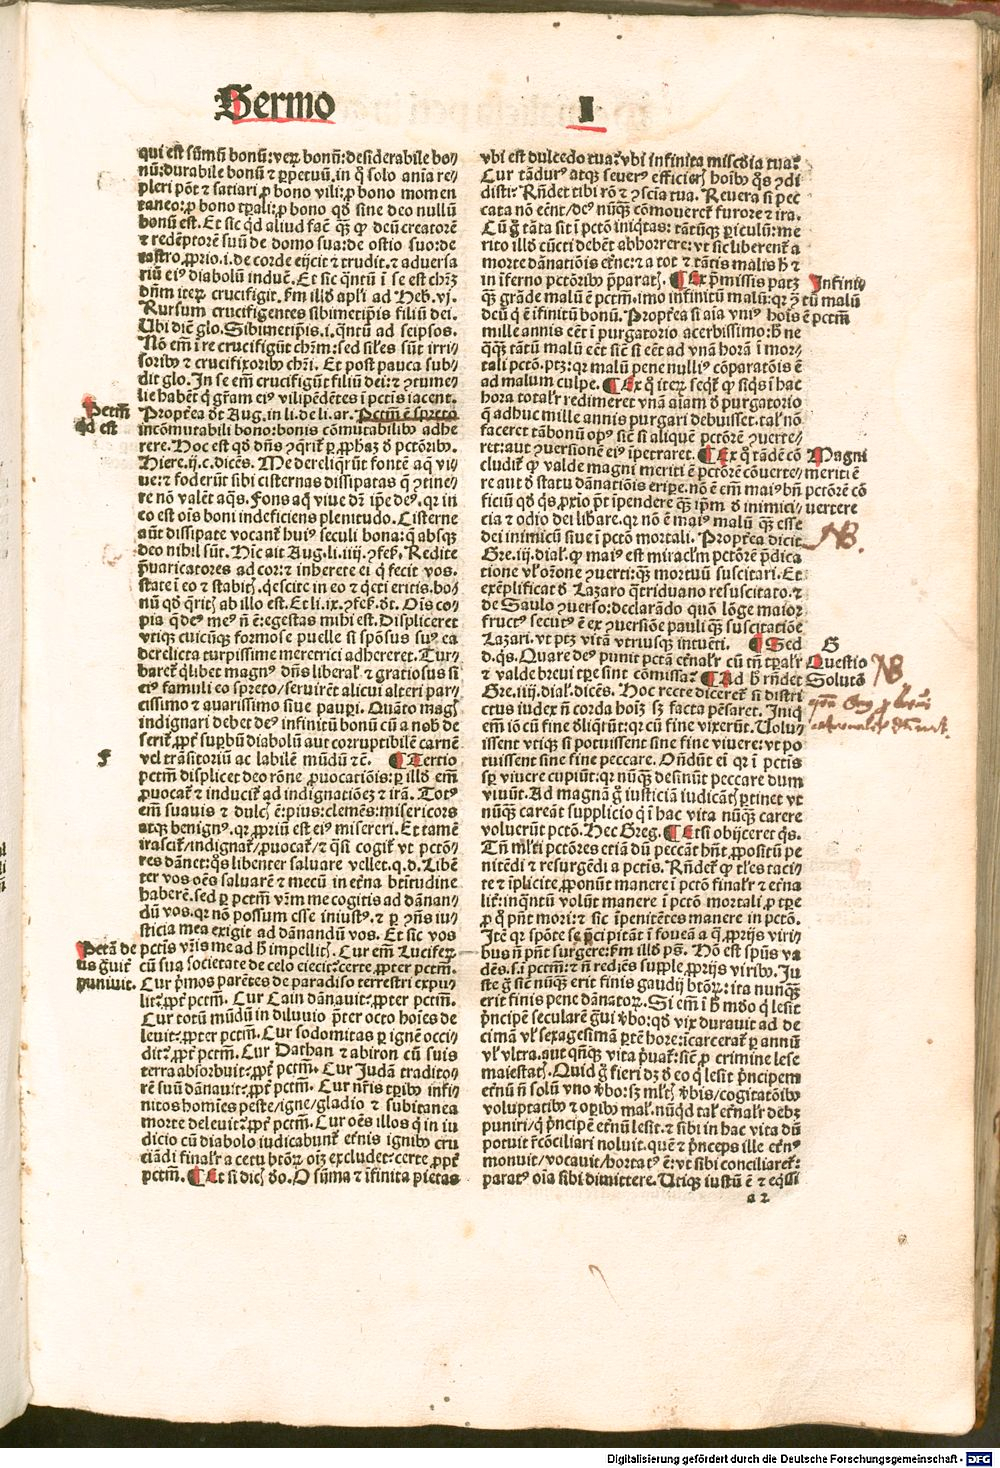 Sermo I
qui est sūmū bonū: verū bonū: desiderabile bo/
nū: durabile bonū ⁊ ꝑpetuū. in q̊ solo aīa re/
pleri pōt ⁊ satiari ꝓ bono vili: ꝓ bono momen
taneo: ꝓ bono tꝑali: ꝓ bono qd̓ sine deo nullū
bonū est. Et sic qd̓ aliud facē q̄ꝫ ꝙ deū creatorē
⁊ redēptorē suū de domo sua: de ostio suo: de
castro ꝓprio .i. de corde eijcit ⁊ trudit. ⁊ aduersa
riū eiꝰ diabolū induc̄. Et sic q̄ntū ī se est chr̄m
dn̄m iterꝝ crucifigit. ẜm illd̓ apl̓i ad Heb. vj.
Rursum crucifigentes sibimetip̄is filiū dei.
Ubi dic̄ glo. Sibimetip̄is .i. q̄ntū ad seipsos.
Nō em̄ ī re crucifigūt chr̄m: sed sil̓es sūt irri/
soribꝰ ⁊ crucifixoribꝰ chr̄i. Et post pauca sub/
dit glo. In se em̄ crucifigūt filiū dei: ⁊ ꝯtume/
lie habēt q̄ gr̄am eiꝰ vilipēdētes ī pctīs iacent.
Pctm̄
qd est
Propt̓ea d̓t Aug. in li. de li. ar. Pctm̄ ē spreto
incōmutabili bono: bonis cōmutabilibꝰ adhe
rere. Hoc est qd̓ dn̄s ꝯq̄rit̓ ꝑ ꝓphaꝫ d̓ pctōribꝰ.
Hiere. ij. c. dicēs. Me dereliq̄rūt fontē aq̄ vi/
ue: ⁊ foderūt sibi cisternas dissipatas q̄ ꝯtine/
re nō valēt aq̄s. Fons aq̄ viue d̓r ip̄e deꝰ. qr in
eo est oīs boni indeficiens plenitudo. Cisterne
aūt dissipate vocant̓ huiꝰ seculi bona: q̄ absqꝫ
deo nihil sūt. Hīc ait Aug. li. iiij. ꝯfes̄. Redite
p̄uaricatores ad cor: ⁊ inherete ei q̄ fecit vos.
state ī eo ⁊ stabit̓. q̄escite in eo ⁊ q̄eti eritis. bo/
nū qd̓ q̄rit̓ ab illo est. Et li. ix. ꝯfes̄. d̓t. Oīs co/
pia q̄ deꝰ meꝰ n̄ ē: egestas mihi est. Displiceret
vtiqꝫ cuicūqꝫ formose puelle si spōsus suꝰ ea
derelicta turpissime meretrici adhereret. Tur/
baret̓ q̄libet magnꝰ dn̄s liberal̓ ⁊ gratiosus si
eiꝰ famuli eo spreto/ seruirēt alicui alteri par/
cissimo ⁊ auarissimo siue pauꝑi. Quāto magꝭ
indignari debet deꝰ infinitū bonū cū a nob̓ de
serit̓ ꝓpt̓ suꝑbū diabolū aut corruptibilē carnē
F
vel trāsitoriū ac labilē mūdū ⁊c̄. ¶ Tertio
pctm̄ displicet deo rōne ꝓuocatiōis: ꝑ illd̓ em̄
ꝓuocat̓ ⁊ inducit̓ ad indignatiōeꝫ ⁊ irā. Totꝰ
em̄ suauis ⁊ dulcꝭ ē: pius: clemēs: misericors
atqꝫ benignꝰ. qr ꝓpriū est eiꝰ misereri. Et tamē
irascit̓/ indignat̓/ ꝓuocat̓/ ⁊ q̄si cogit̓ vt pctō/
res dānet: q̄s libenter saluare vellet. q.d. Libē
ter vos oēs saluarē ⁊ mecū in et̓na btītudine
haberē. sed ꝑ pctm̄ vr̄m me cogitis ad dānan/
dū vos. qr nō possum esse iniustꝰ. ⁊ ꝑ ꝯn̄s iu/
sticia mea exigit ad dānandū vos. Et sic vos
Pctā de
us ḡuit̓
puniuit.
pctīs vr̄is me ad h̓ impellit̓. Cur em̄ Luciferꝝ
cū sua societate de celo eiecit: certe ꝓpter pctm̄.
Cur p̄mos parētes de paradiso terrestri expu/
lit: ꝓpt̓ pctm̄. Cur Cain dānauit: ꝓpter pctm̄.
Cur totū mūdū in diluuio p̄ter octo hoīes de
leuit: ꝓpter pctm̄. Cur sodomitas ꝑ ignē occi/
dit: ꝓpt̓ pctm̄. Cur Dathan ⁊ abiron cū suis
terra absorbuit: ꝓpt̓ pctm̄. Cur Judā tradito/
rē suū dānauit: ꝓpt̓ pctm̄. Cur nr̄is tꝑibꝰ infi/
nitos homīes peste/ igne/ gladio ⁊ subitanea
morte deleuit: ꝓpt̓ pctm̄. Cur oēs illos q̄ in iu
dicio cū diabolo iudicabunt̓ et̓nis ignibꝰ cru
ciādi finalr̓ a cetu btōꝝ oīꝫ excludet: certe ꝓpt̓
pctm̄. ¶ Et si dicꝭ d̓o. O sūma ⁊ īfinita pietas
vbi est dulcedo tua: vbi infinita miscd̓ia tua:
Cur tādurꝰ atqꝫ seuerꝰ efficierꝭ hoībꝰ q̄s ꝯdi
disti: Rn̄det tibi rō ⁊ ꝯscīa tua. Reuera si pec
cata nō eēnt/ deꝰ nūq̄ꝫ cōmoueret̓ furore ⁊ ira.
Cū ḡ tāta sit ī pctō iniq̄tas: tātūqꝫ ꝑiculū: me
rito illd̓ cūcti debēt abhorrere: vt sic liberent̓ a
morte dānatiōis et̓ne: ⁊ a tot ⁊ tātis malis h̓ ⁊
in īferno pctōribꝰ p̄paratꝭ. ¶ Ex p̄missis patꝫ
Infinitū malū ē pctm̄
q̄ꝫ grāde malū ē pctm̄. imo infinitū malū: qr ꝯͣ
deū q̄ ē īfinitū bonū. Propt̓ea si aīa vniꝰ hoīs
mille annis eēt ī purgatorio acerbissimo: h̓ ne
q̄qꝫ tātū malū eēt sic̄ si eēt ad vnā horā ī mor/
tali pctō. ptꝫ: qr malū pene nulliꝰ cōparatōis ē
ad malum culpe. ¶ Ex q̊ iterꝝ seqt̓ ꝙ siq̄s ī hac
hora totalr̓ redimeret vnā aīam d̓ purgatorio
q̄ adhuc mille annis purgari debuisset. tal̓ nō
faceret tābonū opꝰ sic̄ si aliquē pctōrē ꝯuerte/
ret: aut ꝯuersionē eiꝰ īpetraret. ¶ Ex q̊ tādē cō
Magni
meriti ē
pctōrē cō
uertere
cludit̓ ꝙ valde magni meriti ē pctōrē cōuerte/
re aut d̓ statu dānatiōis eriꝑe. nō ē em̄ maiꝰ bn̄
ficiū qd̓ q̄s ꝓxīo p̄t īpendere q̄ꝫ ip̄m d̓ inimici/
cia ⁊ odio dei lib̓are. qr nō ē maiꝰ malū q̄ꝫ esse
dei inimicū siue ī pctō mortali. Propt̓ea dicit
NB.
Gre. iij. dial̓. ꝙ maiꝰ est miracl̓m pctōrē p̄dica
tione vl̓ orōne ꝯuerti: q̄ꝫ mortuū suscitari. Et
exēplificat d̓ Lazaro q̄triduano resuscitato. ⁊
de Saulo ꝯuerso: declarādo quō lōge maior
fructꝰ secutꝰ ē ex ꝯuersiōe pauli q̄ꝫ suscitatiōe
Lazari. vt ptꝫ vitā vtriusqꝫ intuēti. ¶ Sed
G
Questio
NB
d. q̄s. Quare deꝰ punit pctā et̓nalr̓ cū tn̄ tꝑalr̓
⁊ valde breui tꝑe sint cōmissa: ¶ Ad h̓ rn̄det
Solutō
Gre. iiij. dial̓. dicēs. Hoc recte diceret̓ si distri
ctus iudex n̄ corda hoīꝫ sꝫ facta pēsaret. Iniq̄
em̄ iō cū fine d̓liq̄rūt: qr cū fine vixerūt. Uolu/
issent vtiqꝫ si potuissent sine fine viuere: vt po
tuissent sine fine peccare. Oñdūt ei qr ī pctīs
sꝑ viuere cupiūt: qr nūq̄ꝫ desinūt peccare dum
viuūt. Ad magnā ḡ iusticiā iudicātꝭ ꝑtinet vt
nūq̄ꝫ careāt supplicio q̄ ī hac vita nūq̄ꝫ carere
voluerūt pctō. Hec Greg. ¶ Etsi obijceret q̄s.
Tn̄ ml̓ti pctōres etiā dū peccāt hn̄t ꝓpositū pe
nitēdi ⁊ resurgēdi a pctīs. Rn̄det̓ ꝙ tl̓es taci/
te ⁊ īplicite ꝓponūt manere ī pctō finalr̓ ⁊ et̓na
lit̓: inq̄ntū volūt manere ī pctō mortali. ꝓ tꝑe
ꝓ q̊ pn̄t mori: ⁊ sic īpenitētes manere in pctō.
Itē qr spōte se p̄cipitāt ī foueā a q̄ ꝓprijs viri/
bus n̄ pn̄t surgere: ẜm illd̓ ps̄. Hō est spūs va
dēs. s. ī pctm̄: ⁊ n̄ rediēs supple ꝓprijs viribꝰ. Iu
ste ḡ sic̄ nūq̄ꝫ erit finis gaudij btōꝝ: ita nunq̄ꝫ
erit finis pene dānatoꝝ. Si em̄ ī h̓ mūdo q̄ lesit
p̄ncipē secularē ḡui v̓bo: qd̓ vix durauit ad de
cimā vl̓ sexagesimā ꝑtē hore: icarcerat̓ ꝑ annū
vl̓ vltra. aut q̄nqꝫ vita p̄uat̓: sic̄ ꝓ crimine lese
maiestatꝭ. Quid ḡ fieri dꝫ d̓ eo q̄ lesit p̄ncipem
et̓nū n̄ solū vno v̓bo: sꝫ ml̓tꝭ v̓bis/ cogitatōibꝰ
voluptatibꝰ ⁊ oꝑibꝰ mal̓. nūqd̓ tal̓ et̓nalr̓ debꝫ
puniri/ q̄ p̄ncipē et̓nū lesit. ⁊ sibi in hac vita dū
potuit r̄cōciliari noluit. quē ⁊ p̄nceps ille et̓nꝰ
monuit/ vocauit/ hortatꝰ ē: vt sibi conciliaret̓:
paratꝰ oīa sibi dimittere. Utiqꝫ iustū ē ⁊ eq̄ssi
a 2
Digitalisierung gefördert durch die Deutsche Forschungsgemeinschaft - DFG